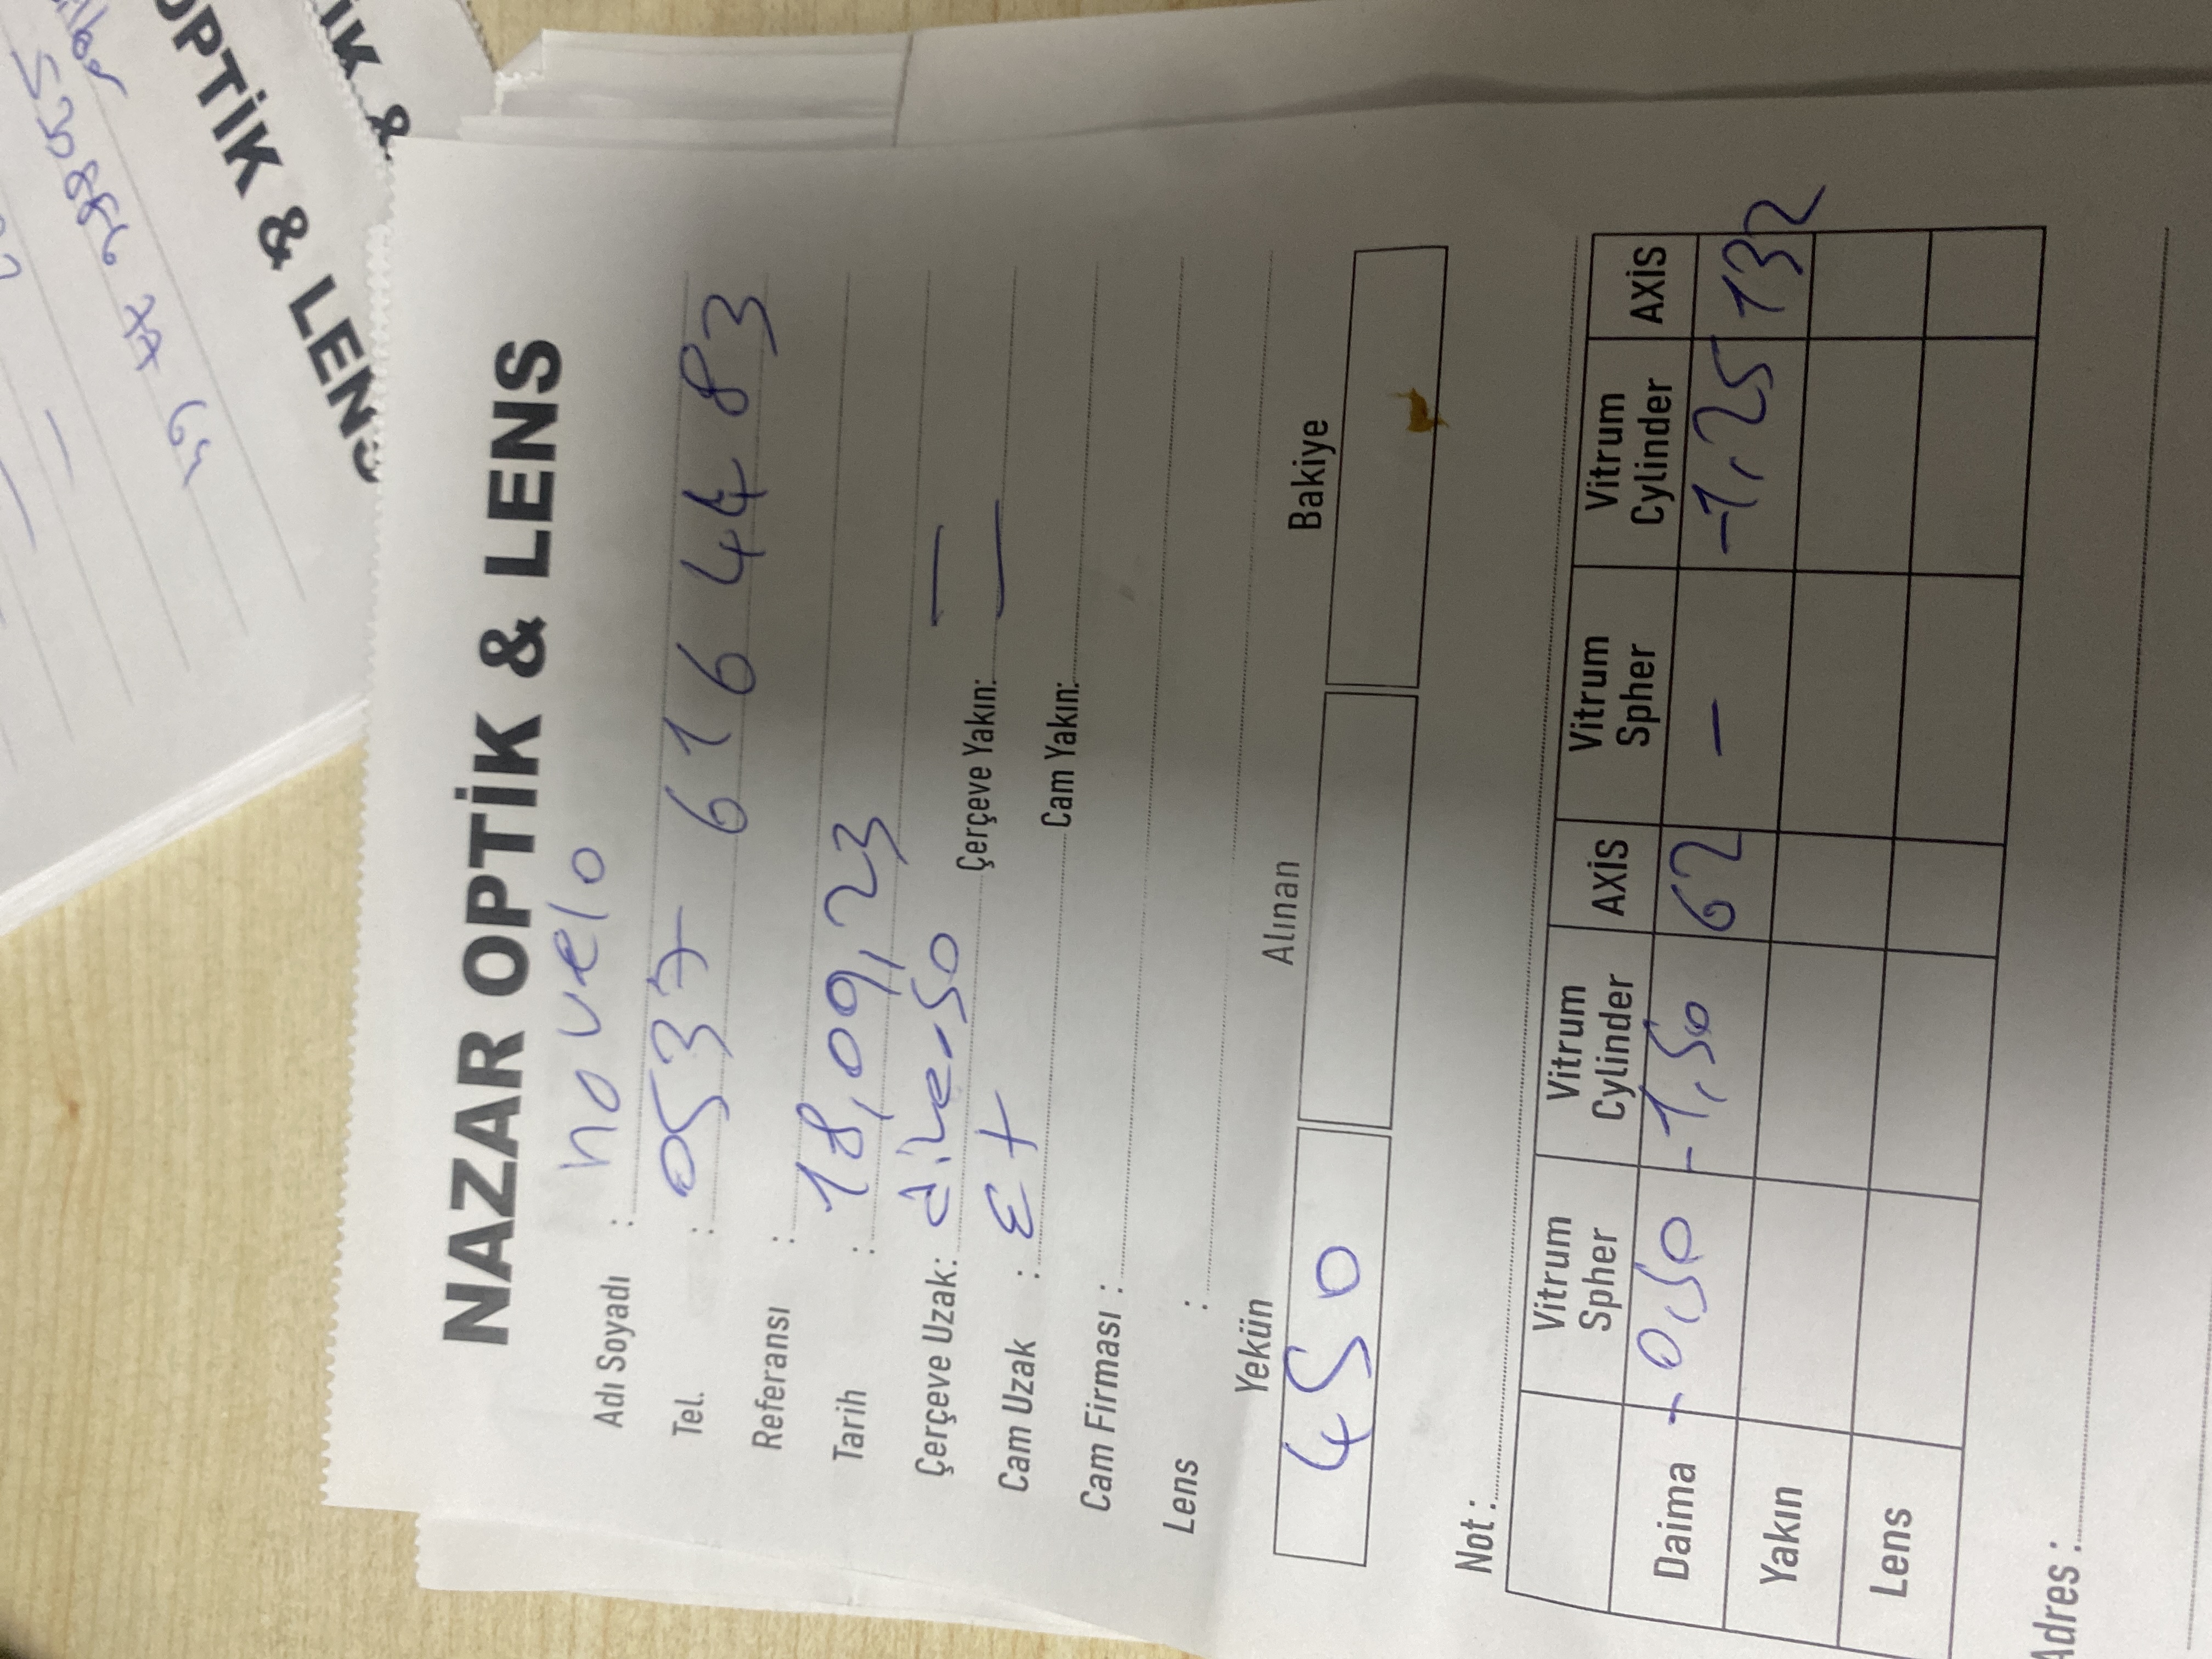 520886 77 64
OPTİK & LENS
İK &
NAZAR OPTİK & LENS
Adı Soyadı : novelo
Tel. : 0537 616 44 83
Referansı :
Tarih : 18,09,23
Çerçeve Uzak: diverso Çerçeve Yakın: —
Cam Uzak : Ex Cam Yakın: —
Cam Firması :
Lens :
Yekün Alınan Bakiye
450
Not :
Vitrum Spher Vitrum Cylinder AXİS Vitrum Spher Vitrum Cylinder AXİS
Daima -0,50 -1,50 62 - -1,25 132
Yakın
Lens
Adres :